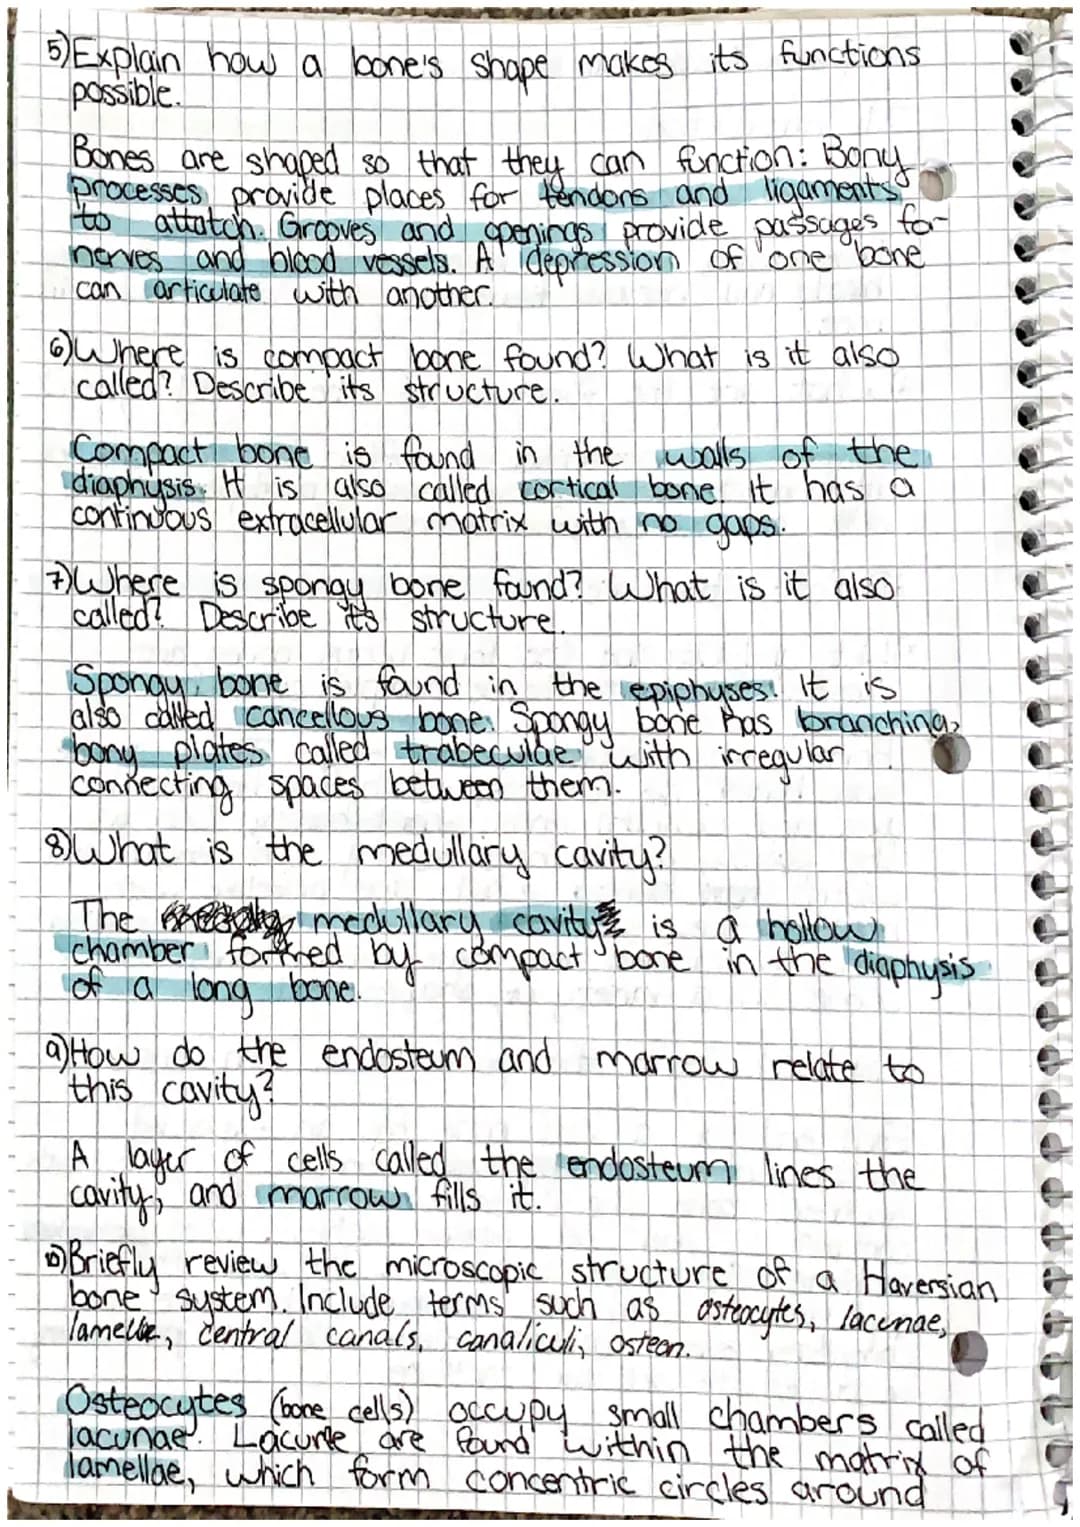 5) Explain how a bone's shape makes its functions
possible.
Bones are shaped so that they can function: Bony
processes provide places for tendons and ligaments
to attatch. Grooves and openings provide passages for
nerves and blood vessels. A depression of one bone
can articulate with another.
6) Where is compact bone found? What is it also
called? Describe its structure.
Compact bone is found in the walls of the
diaphysis. It is also called cortical bone. It has a
continuous extracellular matrix with no gaps.
7) Where is spongy bone found? What is it also
called? Describe it's structure.
Spongy bone is found in the epiphyses. It is
also called cancellous bone. Spongy bone has branching,
bony plates called trabeculae with irregular
connecting spaces between them.
8) What is the medullary cavity?
The medullary cavity is a hollow
chamber formed by compact bone in the diaphysis
of a long bone.
9) How do the endosteum and marrow relate to
this cavity?
A layer of cells called the endosteum lines the
cavity, and marrow fills it.
10) Briefly review the microscopic structure of a Haversian
bone system. Include terms such as osteocytes, lacunae,
lamellae, central canals, canaliculi, osteon.
Osteocytes (bone cells) occupy small chambers called
lacunae. Lacunae are found within the matrix of
lamellae, which form concentric circles around